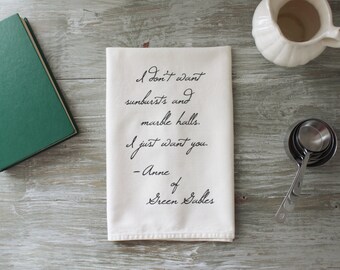 I don't want
sunbursts and
marble halls.
I just want you.
- Anne
of
Green Gables